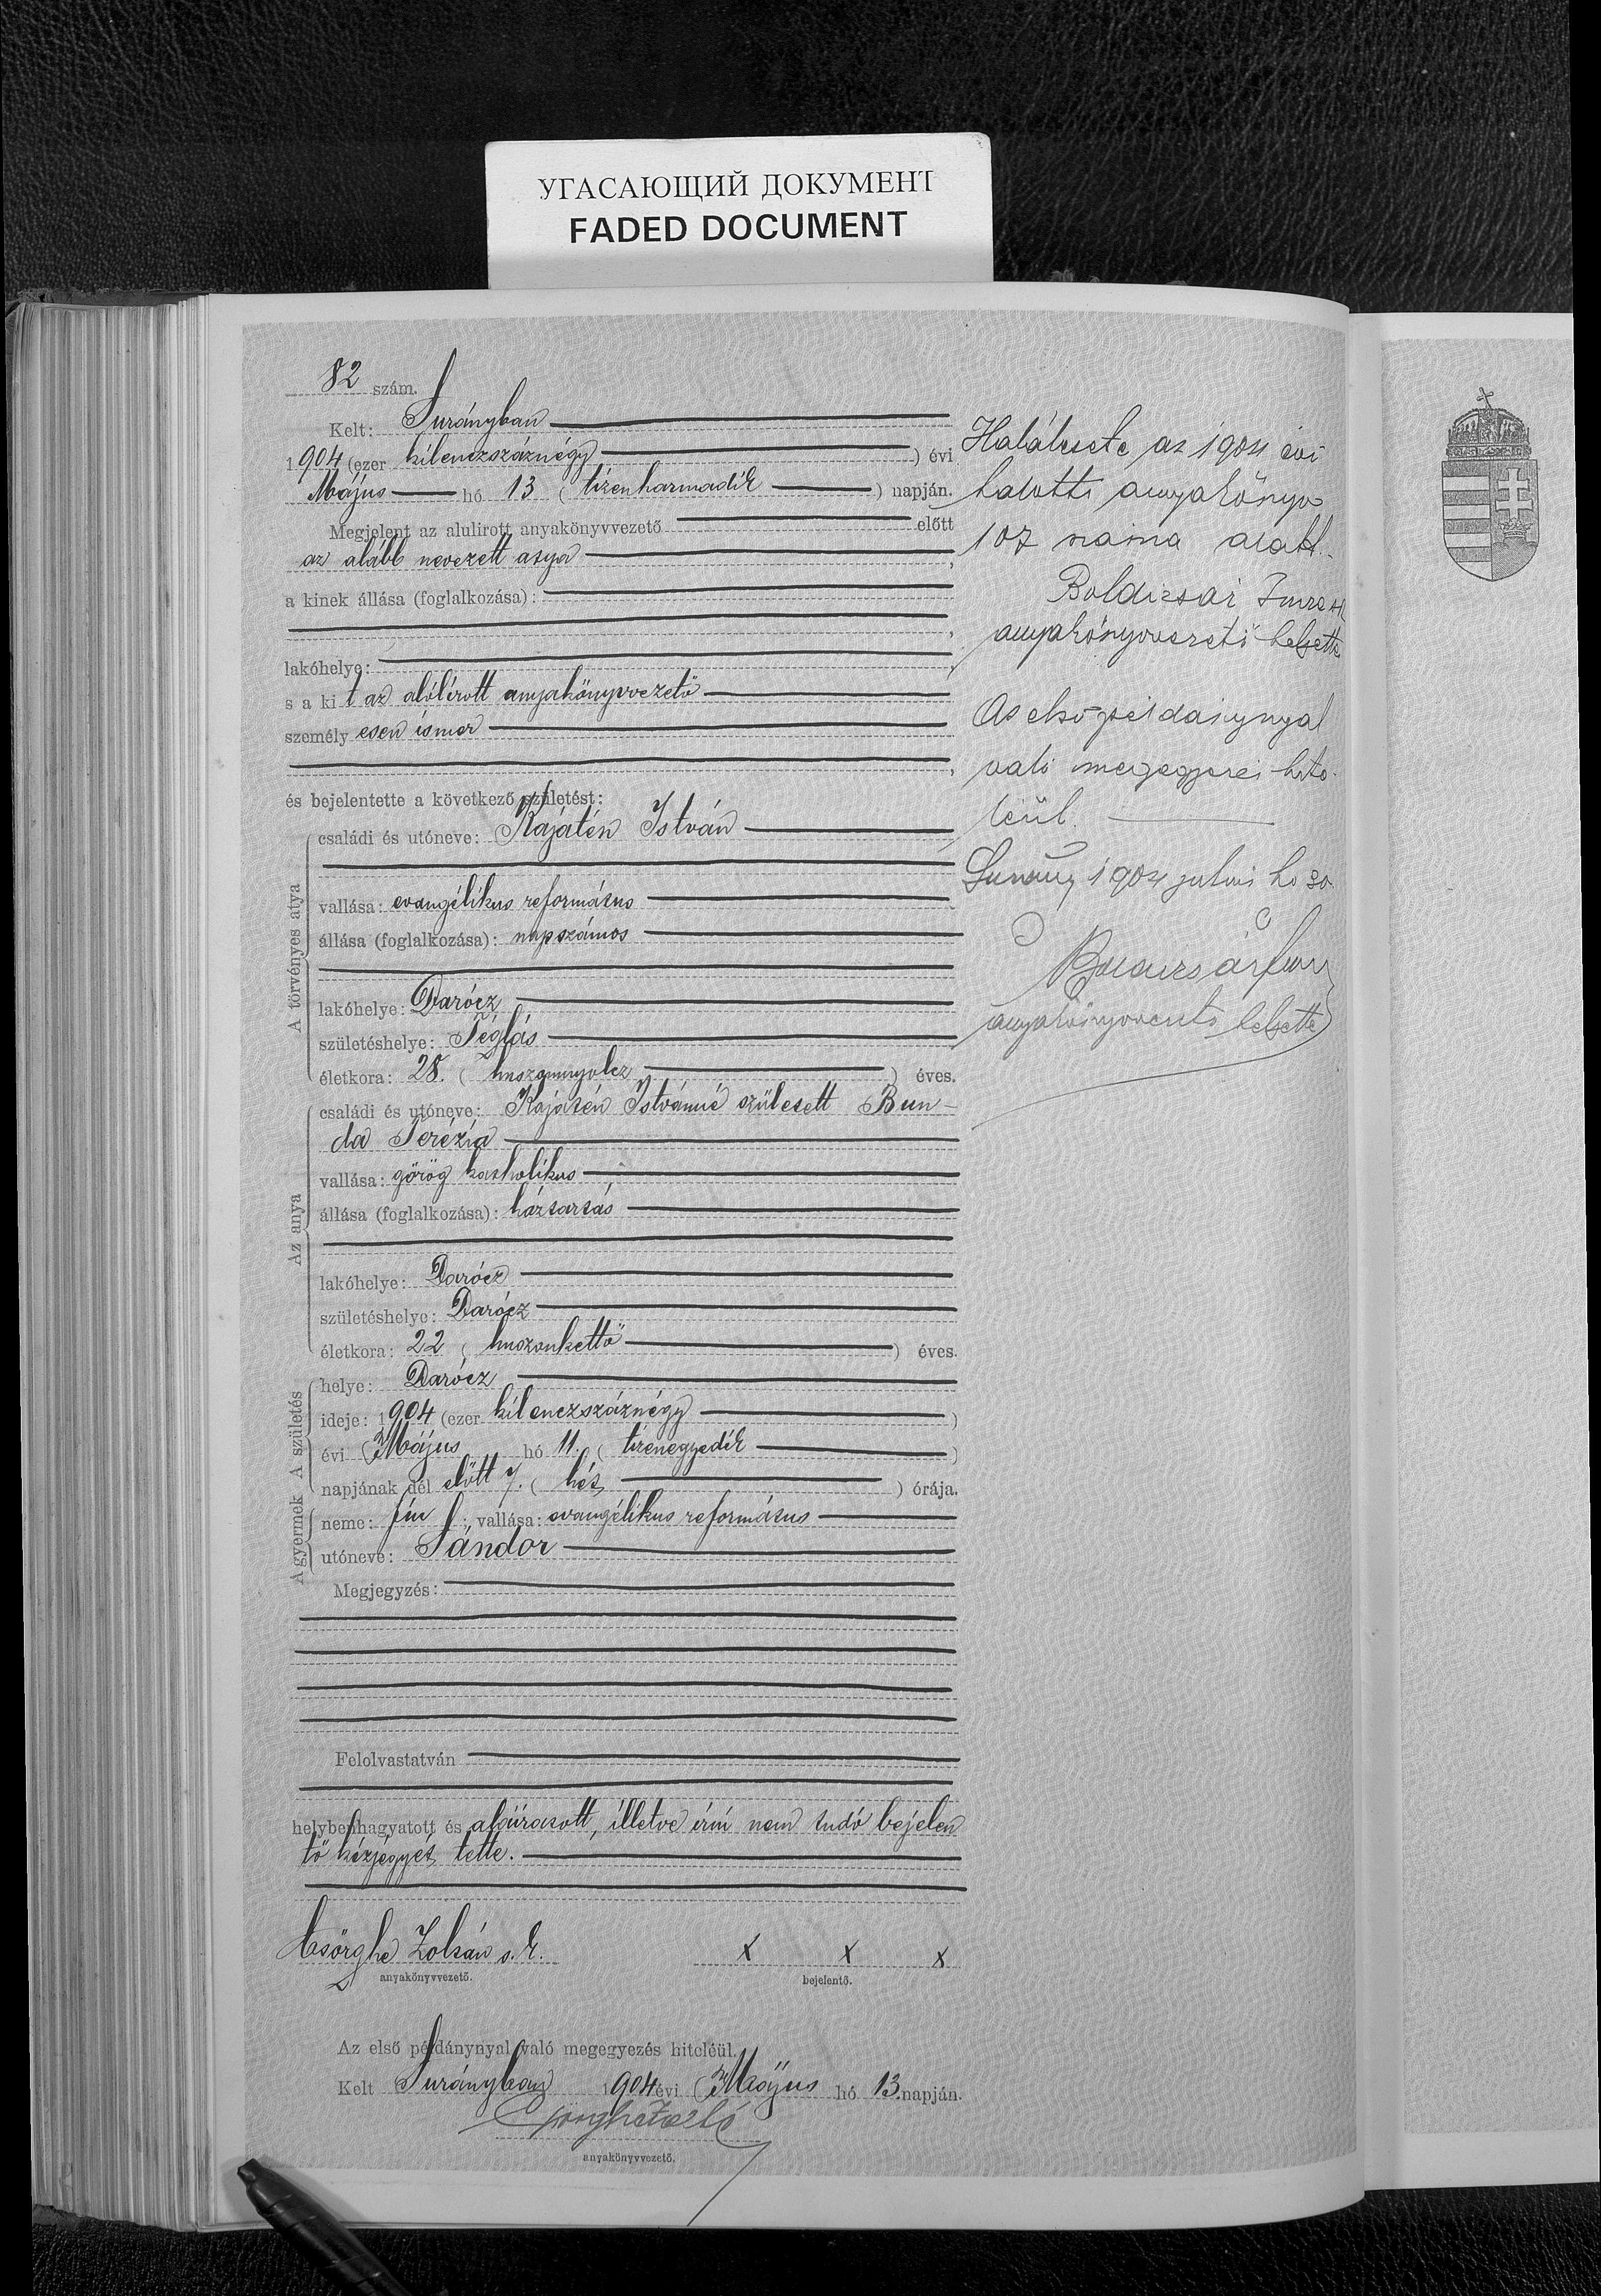 УГАСАЮЩИЙ ДОКУМЕНТ
FADED DOCUMENT
82 szám.
Kelt: Surányban
1904 (ezer kilenczszáznégy) évi
Május hó 13 (tizenharmadik) napján.
Megjelent az alulirott anyakönyvvezető előtt
az alább nevezett atya
a kinek állása (foglalkozása):
lakóhelye:
s a kit az alólírott anyakönyvvezető
személyesen ismer
és bejelentette a következő születést:
A törvényes atya
családi és utóneve: Kajátén István
vallása: evangélikus református
állása (foglalkozása): napszámos
lakóhelye: Darócz
születéshelye: Téglás
életkora: 28. (huszonnyolcz) éves.
Az anya
családi és utóneve: Kajatén Istvánné született Bun-
da Terézia
vallása: görög katholikus
állása (foglalkozása): háztartás
lakóhelye: Darócz
születéshelye: Darócz
életkora: 22 (huszonkettő) éves.
A születés
helye: Darócz
ideje: 1904 (ezer kilenczszáznégy)
évi Május hó 11. (tizenegyedik)
napjának dél előtt 7. (hét) órája.
A gyermek
neme: fiu; vallása: evangélikus református
utóneve: Sándor
Megjegyzés:
Felolvastatván
helybenhagyatott és aláíratott, illetve írni nem tudó bejelen
tő kézjegyét tette.
Csörghe Zoltán s. k.
anyakönyvvezető.
x x x
bejelentő.
Az első példánynyal való megegyezés hiteléül.
Kelt Surányban 1904 évi Május hó 13. napján.
anyakönyvvezető.
Halálesete az 1904 évi
halotti anyakönyv
107 száma alatt.
Boldizsár Imre sk
anyakönyvvezető helyettes
Az első példánynyal
való megegyezés hite-
léül.
Surány 1904 julius hó 30
Boldizsár Imre
anyakönyvvezető helyettes